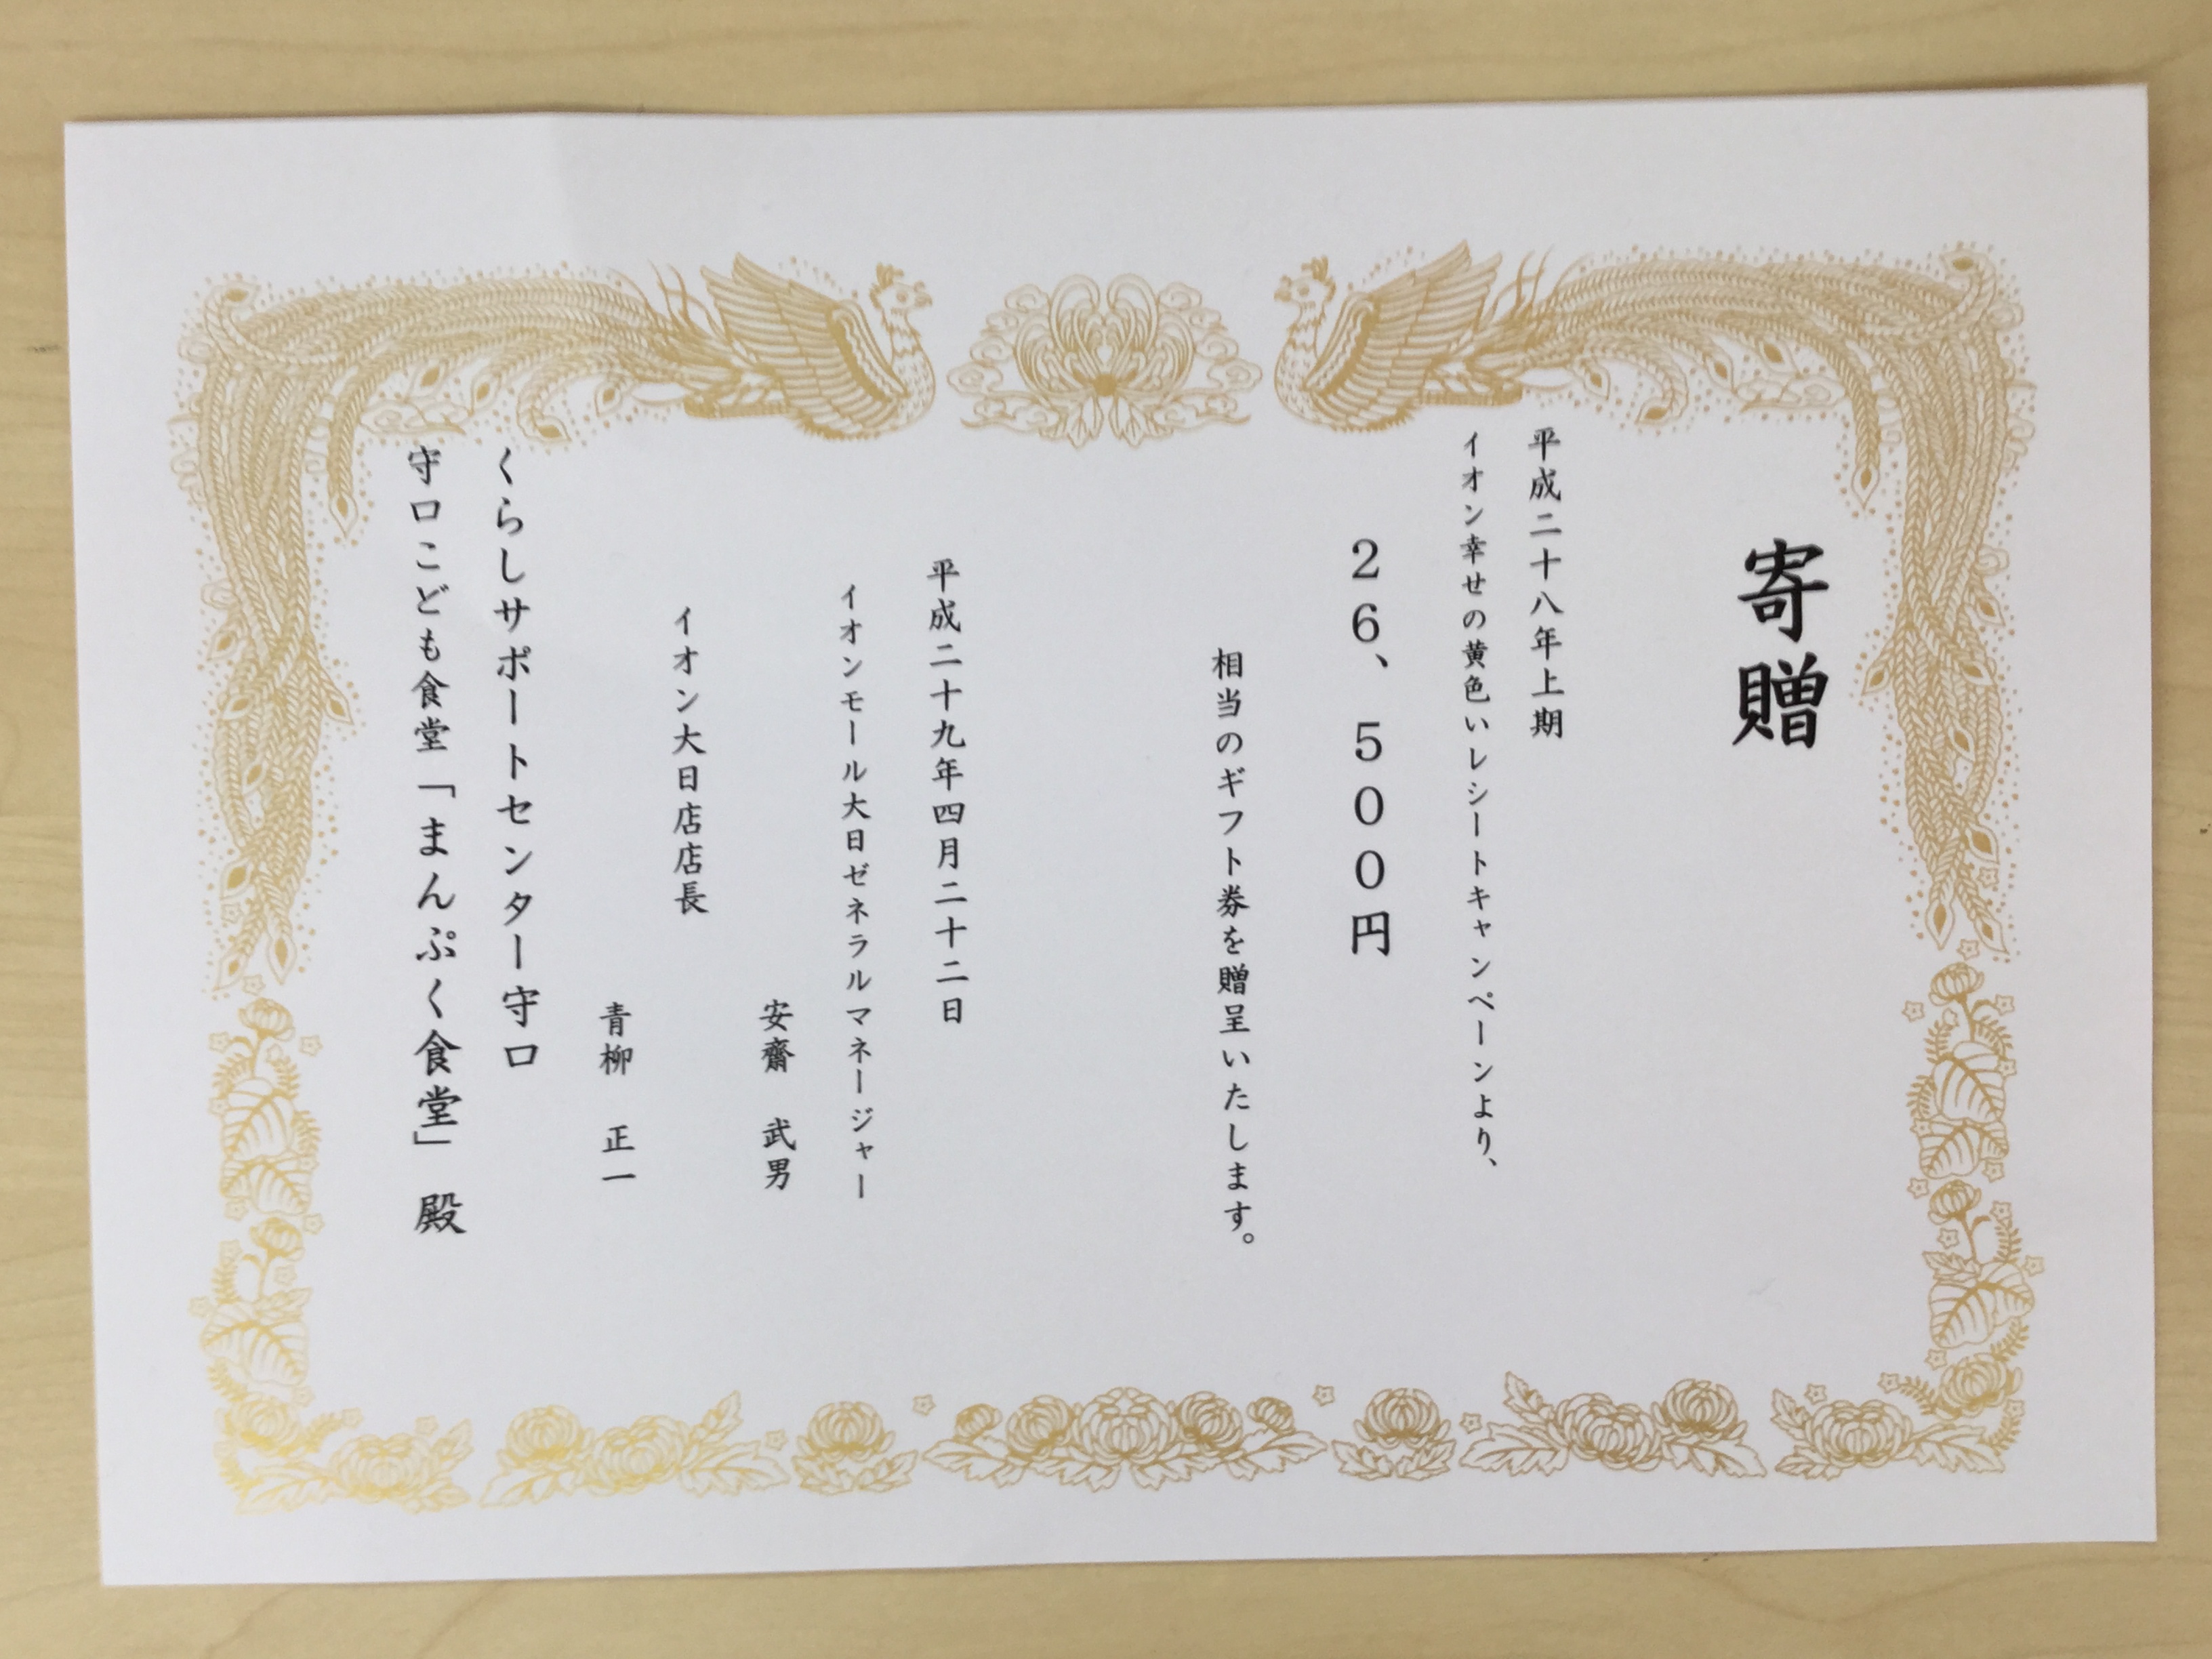 寄贈
平成二十八年上期
イオン幸せの黄色いレシートキャンペーンより、
26、500円
相当のギフト券を贈呈いたします。
平成二十九年四月二十二日
イオンモール大日ゼネラルマネージャー
安齋 武男
イオン大日店店長
青柳 正一
くらしサポートセンター守口
守口こども食堂「まんぷく食堂」 殿